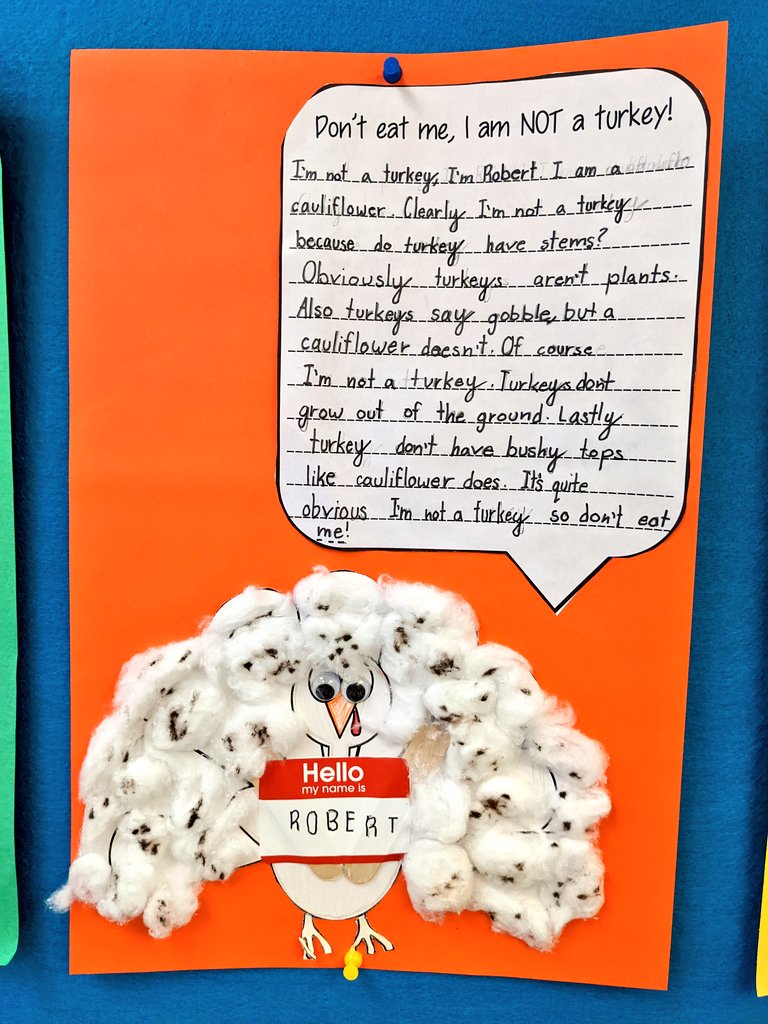 Don't eat me, I am NOT a turkey!
I'm not a turkey, I'm Robert. I am a
cauliflower. Clearly I'm not a turkey
because do turkey have stems?
Obviously turkeys aren't plants.
Also turkeys say gobble, but a
cauliflower doesn't. Of course
I'm not a turkey. Turkeys don't
grow out of the ground. Lastly
turkey don't have bushy tops
like cauliflower does. It's quite
obvious I'm not a turkey so don't eat
me!
Hello
my name is
ROBERT